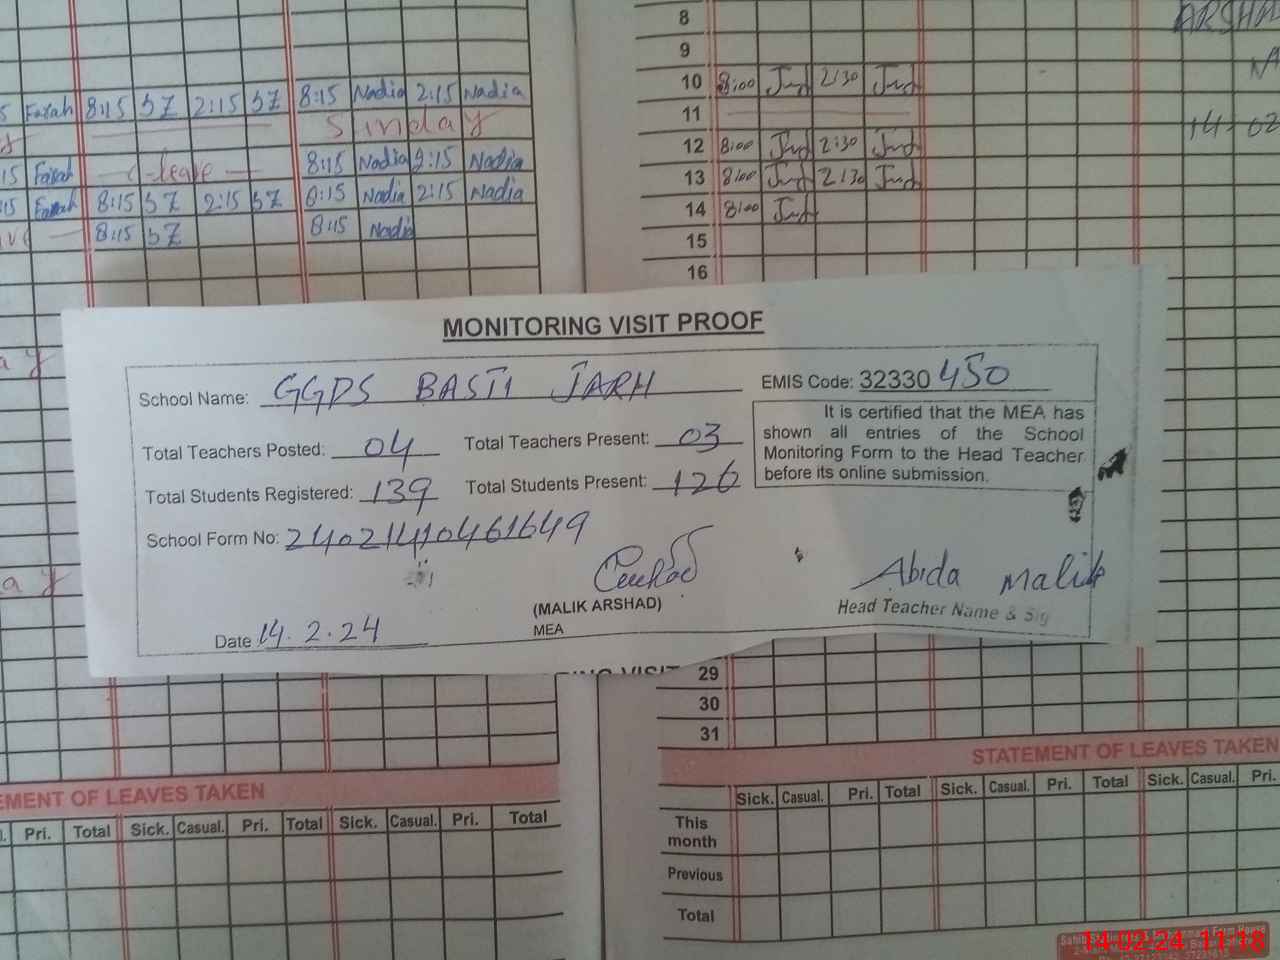 5 Farah 8:15 SZ 2:15 SZ 8:15 Nadia 2:15 Nadia
Sunday
15 Farah - C-leave - 8:15 Nadia 2:15 Nadia
:15 Farah 8:15 SZ 2:15 SZ 8:15 Nadia 2:15 Nadia
8:15 SZ 8:15 Nadia
8
9
10 8:00 2:30
11
12 8:00 2:30
13 8:00 2:30
14 8:00
15
16
14-02
MONITORING VISIT PROOF
School Name: GGPS BASTI JARH EMIS Code: 32330450
Total Teachers Posted: 04 Total Teachers Present: 03
Total Students Registered: 139 Total Students Present: 126
School Form No: 24021410461649
It is certified that the MEA has
shown all entries of the School
Monitoring Form to the Head Teacher
before its online submission.
Abida Malik
(MALIK ARSHAD) Head Teacher Name & Sig
MEA
Date 14.2.24
29
30
31
EMENT OF LEAVES TAKEN
Pri. Total Sick. Casual. Pri. Total Sick. Casual. Pri. Total
STATEMENT OF LEAVES TAKEN
Sick. Casual. Pri. Total Sick. Casual. Pri. Total Sick. Casual. Pri.
This
month
Previous
Total
14-02-24 11:18